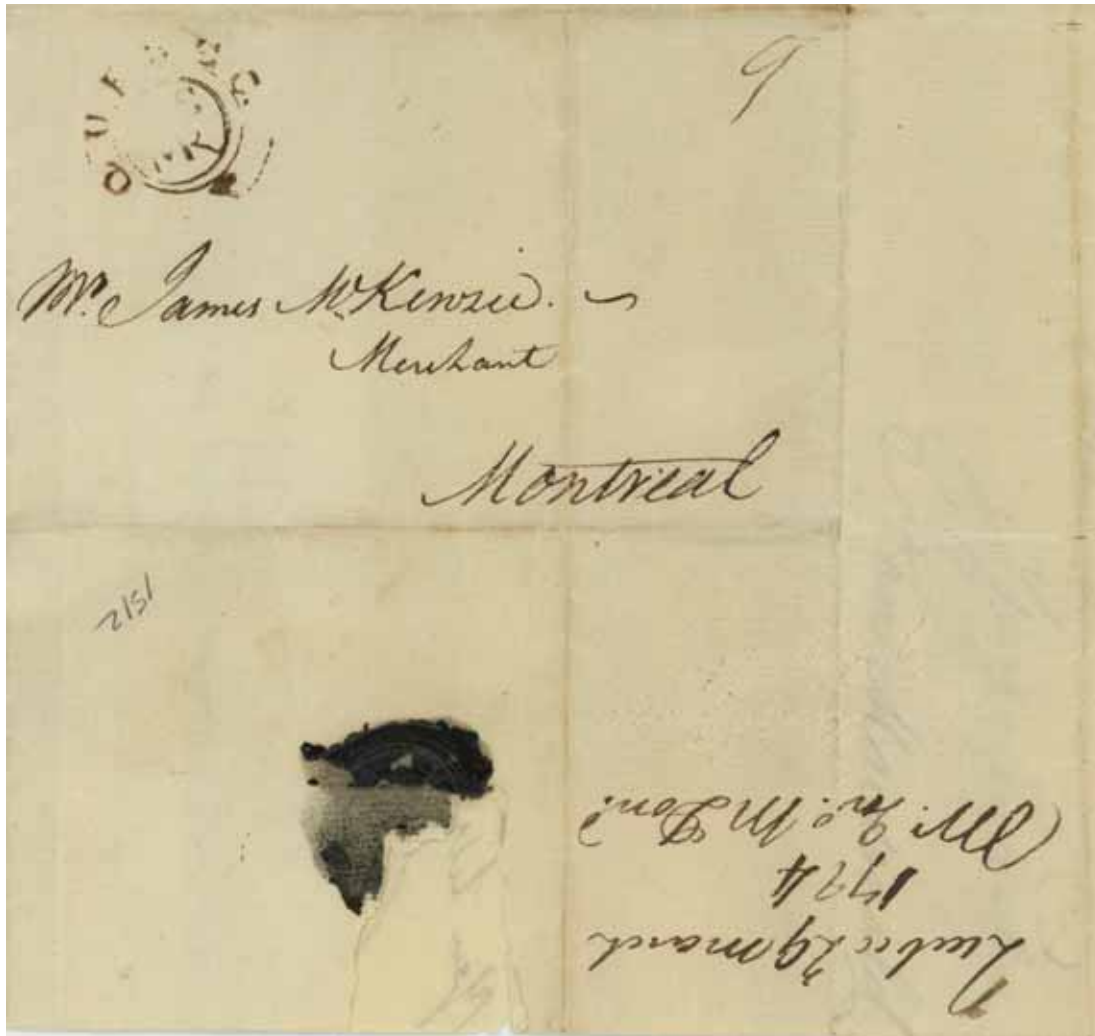 QUEBEC
9
Mr. James McKenzie.
Merchant
Montreal
1512
Quebec 29 march
1794
Mr. Jno. McDond